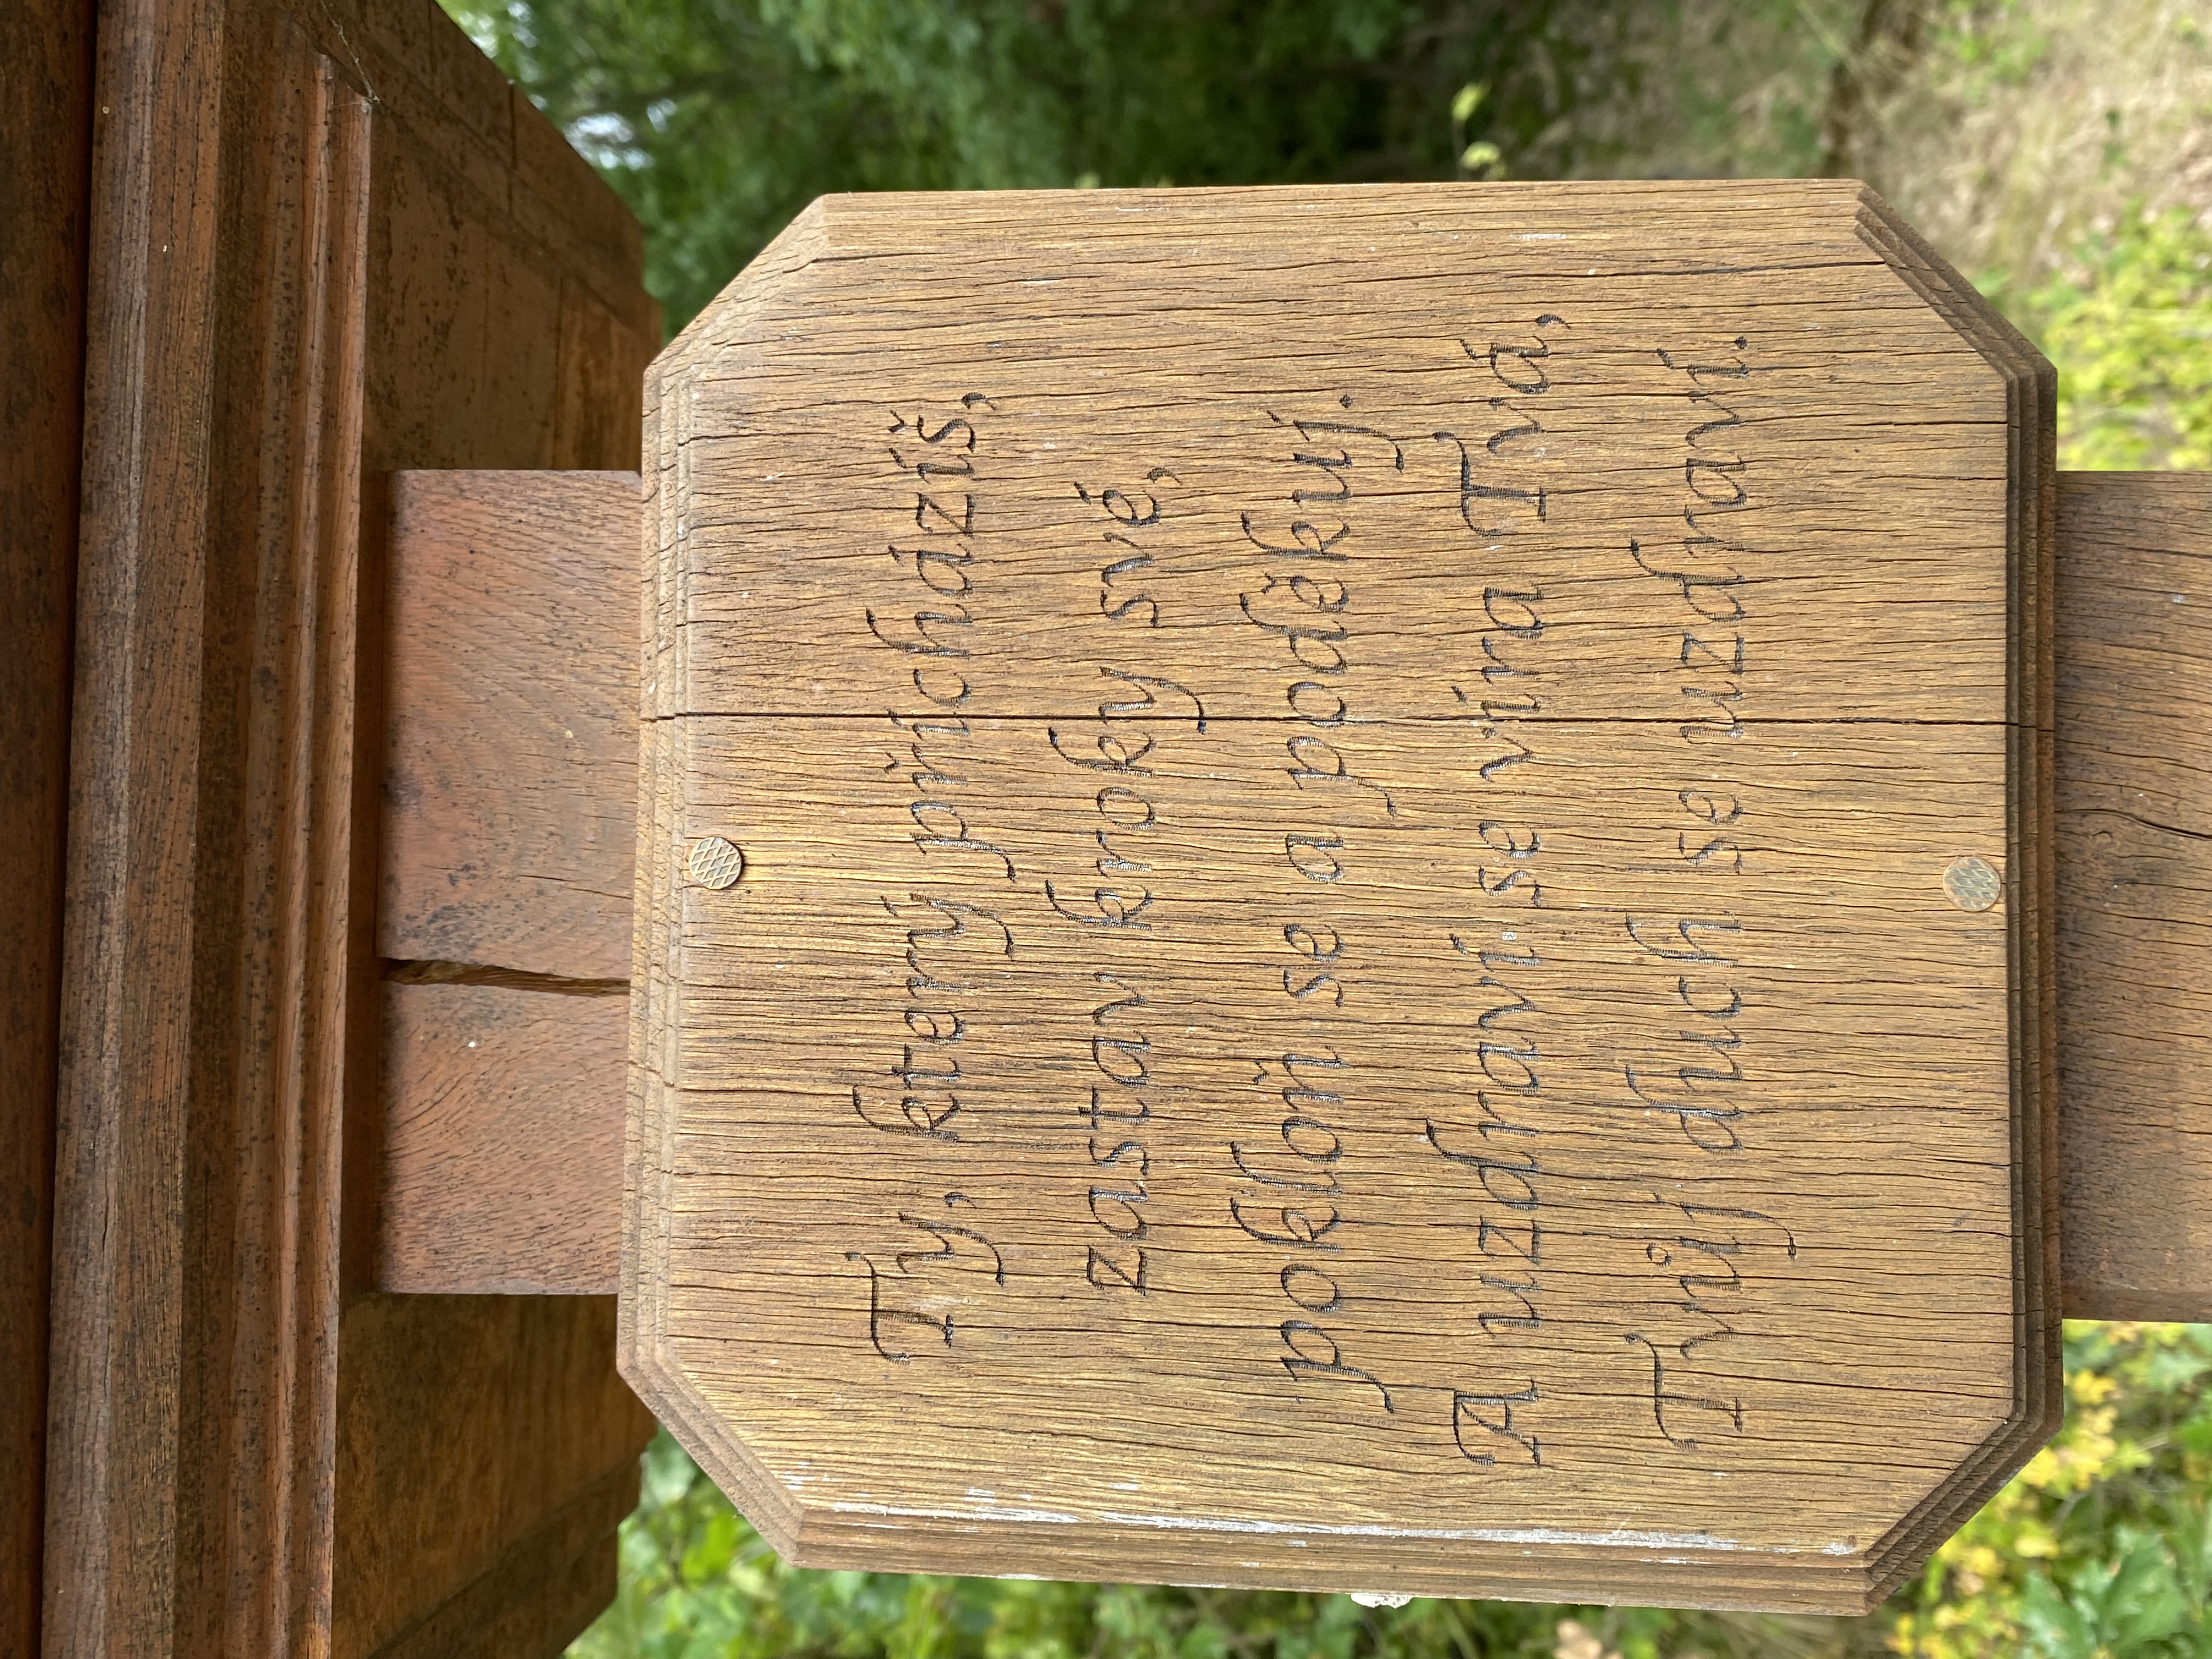 Ty, který přicházíš,
zastav kroky své,
pokloň se a poděkuj.
A uzdraví se víra Tvá,
Tvůj duch se uzdraví.